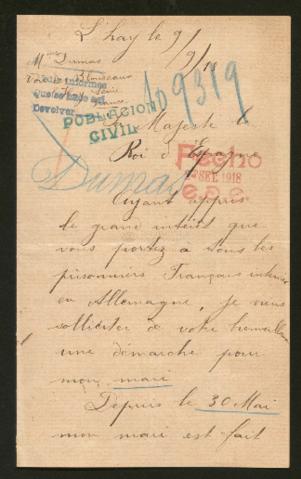 L'hay le 9/9/18
Mme Dumas
POBLACION
CIVIL
Devolver
9319
Majesté le
Roi d'Espagne
Fecho
SET. 1918
Dumas
Ayant appris
le grand intérêt que
vous portez à tous les
prisonniers Français internés
en Allemagne, je viens
solliciter de votre bienveillance
une démarche pour
mon mari
Depuis le 30 Mai
mon mari est fait